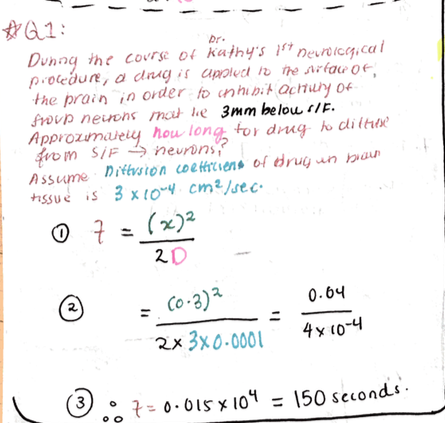 ☆Q1:
During the course of Dr. Kathy's 1st neurological
procedure, a drug is applied to the surface of
the brain in order to inhibit activity of
group neurons that lie 3mm below S/F.
Approximately how long for drug to diffuse
from S/F → neurons?
Assume Diffusion coefficient of drug in brain
tissue is 3 x 10⁻⁴ cm²/sec.
① 7 = (x)² / 2D
② = (0.3)² / 2 x 3 x 0.0001 = 0.04 / 4 x 10⁻⁴
③ ∴ 7 = 0.015 x 10⁴ = 150 seconds.